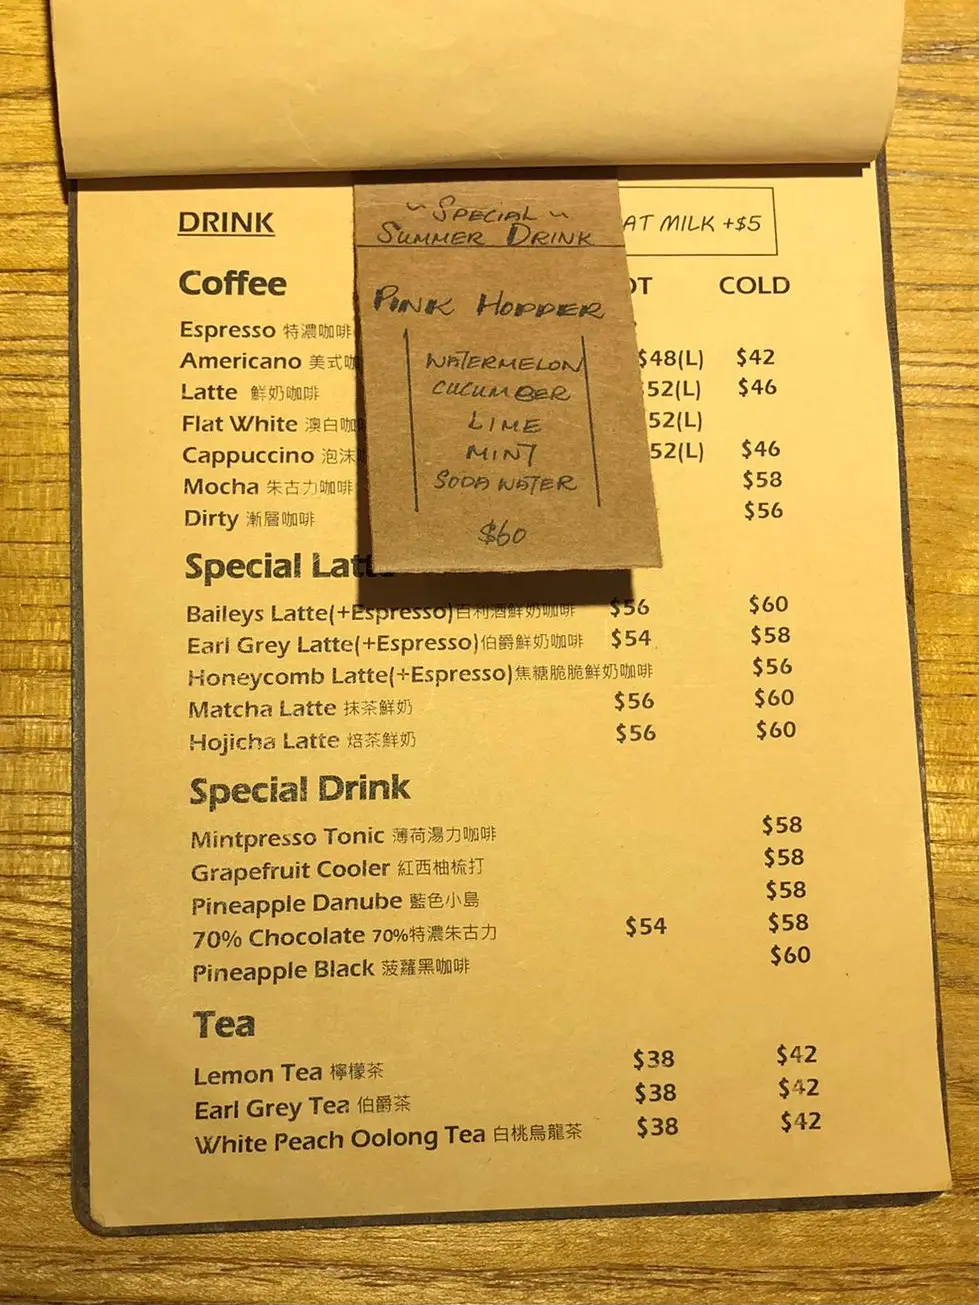 DRINK
AT MILK +$5
~ SPECIAL ~
SUMMER DRINK
PINK HOPPER
WATERMELON
CUCUMBER
LIME
MINT
SODA WATER
$60
Coffee OT COLD
Espresso 特濃咖啡
Americano 美式咖 $48(L) $42
Latte 鮮奶咖啡 52(L) $46
Flat White 澳白咖 52(L)
Cappuccino 泡沫 52(L) $46
Mocha 朱古力咖啡 $58
Dirty 漸層咖啡 $56
Special Latte
Baileys Latte(+Espresso)百利酒鮮奶咖啡 $56 $60
Earl Grey Latte(+Espresso)伯爵鮮奶咖啡 $54 $58
Honeycomb Latte(+Espresso)焦糖脆脆鮮奶咖啡 $56
Matcha Latte 抹茶鮮奶 $56 $60
Hojicha Latte 焙茶鮮奶 $56 $60
Special Drink
Mintpresso Tonic 薄荷湯力咖啡 $58
Grapefruit Cooler 紅西柚梳打 $58
Pineapple Danube 藍色小島 $58
70% Chocolate 70%特濃朱古力 $54 $58
Pineapple Black 菠蘿黑咖啡 $60
Tea
Lemon Tea 檸檬茶 $38 $42
Earl Grey Tea 伯爵茶 $38 $42
White Peach Oolong Tea 白桃烏龍茶 $38 $42